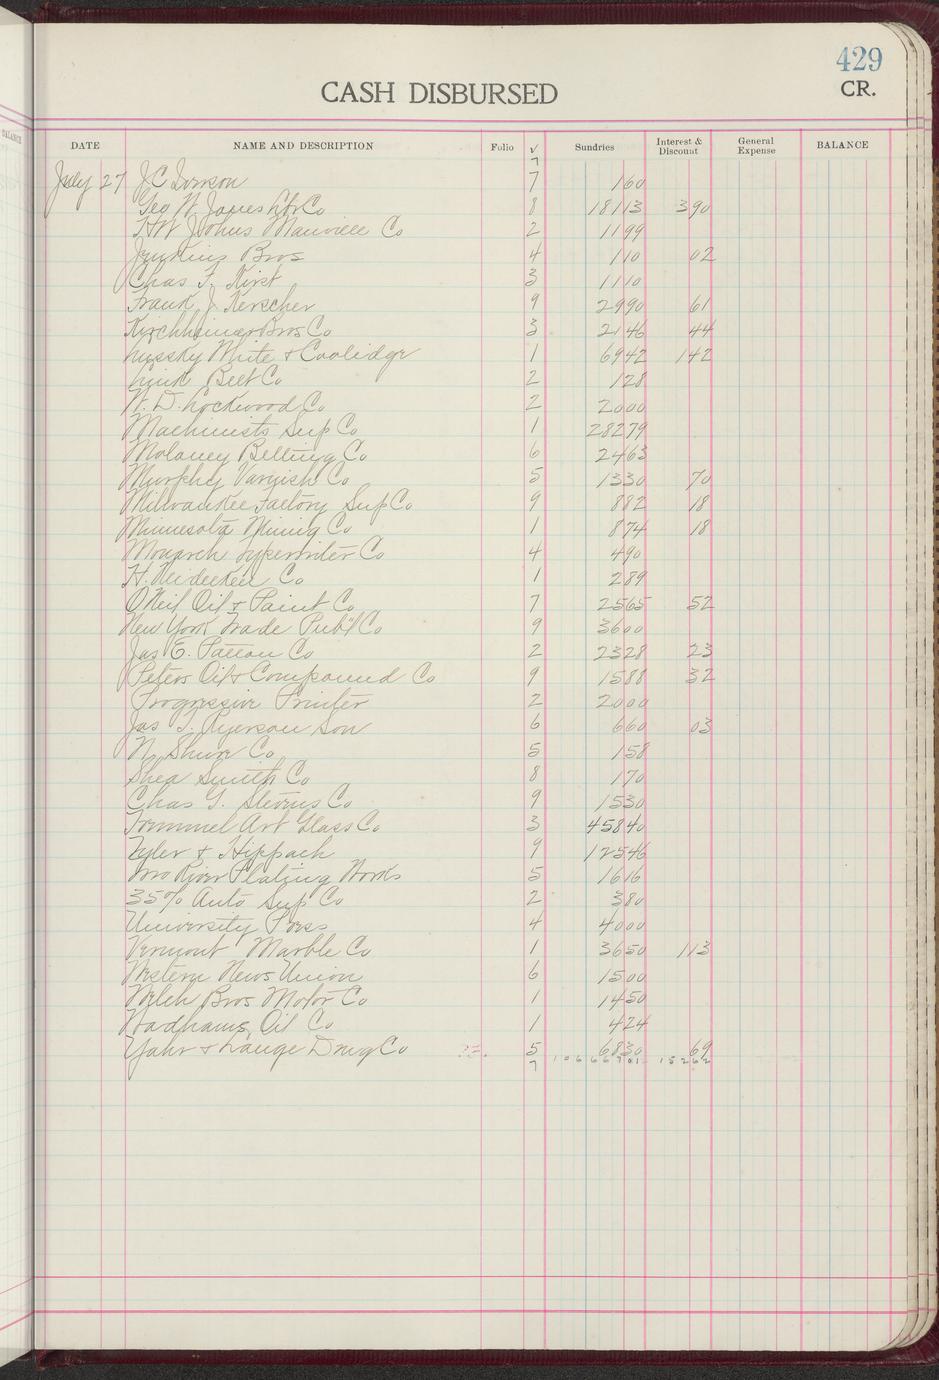 429
CASH DISBURSED
CR.
BALANCE
DATE NAME AND DESCRIPTION Folio √ Sundries Interest & Discount General Expense BALANCE
7
July 27 J C Iverson 7 160
Geo W. Jones Lbr Co 8 18113 390
H W Johns Manville Co 2 1199
Jenkins Bros 4 110 02
Chas F. Kirst 3 1110
Frank J. Kerscher 9 2990 61
Kirchheimer Bros Co 3 2146 44
Lussky White & Coolidge 1 6942 142
Link Belt Co 2 128
W. D. Lockwood Co 2 2000
Machinists Sup Co 1 28279
Molaney Belting Co 6 2463
Murphy Varnish Co 5 1330 70
Milwaukee Factory Sup Co 9 882 18
Minnesota Mining Co 1 874 18
Monarch Typewriter Co 4 490
H. Neidecken Co 1 289
O'Neil Oil & Paint Co 7 2565 52
New York Trade Pub'l Co 9 3600
Jas E. Patton Co 2 2328 23
Peters Oil & Compound Co 9 1588 32
Progressive Printer 2 2000
Jas T. Ryerson Son 6 660 03
N. Shure Co 5 158
Shea Smith Co 8 170
Chas G. Stevens Co 9 1530
Tremmel Art Glass Co 3 45840
Tyler & Hippach 9 12546
Two River Plating Works 5 1616
35% Auto Sup Co 2 380
University Press 4 4000
Vermont Marble Co 1 3650 113
Western News Union 6 1500
Welch Bros Motor Co 1 1450
Wadhams Oil Co 1 424
Yahr & Lange Drug Co 5 6830 69
7 10666701 15262